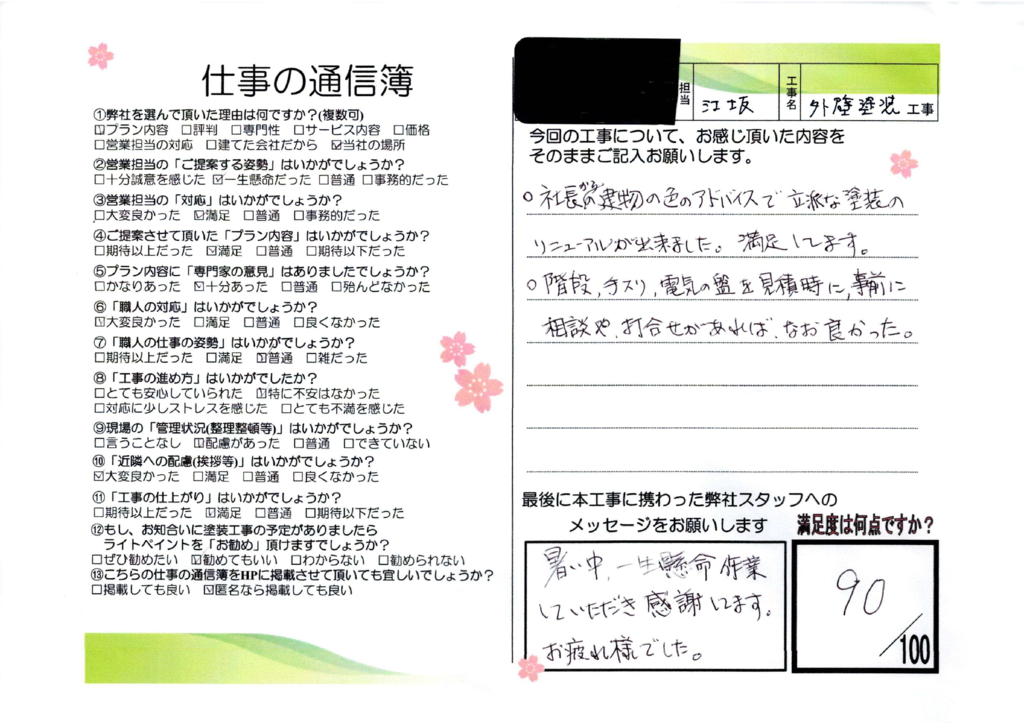 仕事の通信簿
①弊社を選んで頂いた理由は何ですか?(複数可)
☑プラン内容 □評判 □専門性 □サービス内容 □価格
□営業担当の対応 □建てた会社だから ☑当社の場所
②営業担当の「ご提案する姿勢」はいかがでしょうか?
□十分誠意を感じた ☑一生懸命だった □普通 □事務的だった
③営業担当の「対応」はいかがでしょうか?
□大変良かった ☑満足 □普通 □事務的だった
④ご提案させて頂いた「プラン内容」はいかがでしょうか?
□期待以上だった ☑満足 □普通 □期待以下だった
⑤プラン内容に「専門家の意見」はありましたでしょうか?
□かなりあった ☑十分あった □普通 □殆んどなかった
⑥「職人の対応」はいかがでしょうか?
☑大変良かった □満足 □普通 □良くなかった
⑦「職人の仕事の姿勢」はいかがでしょうか?
□期待以上だった □満足 ☑普通 □雑だった
⑧「工事の進め方」はいかがでしたか?
□とても安心していられた ☑特に不安はなかった
□対応に少しストレスを感じた □とても不満を感じた
⑨現場の「管理状況(整理整頓等)」はいかがでしょうか?
□言うことなし ☑配慮があった □普通 □できていない
⑩「近隣への配慮(挨拶等)」はいかがでしょうか?
☑大変良かった □満足 □普通 □良くなかった
⑪「工事の仕上がり」はいかがでしょうか?
□期待以上だった ☑満足 □普通 □期待以下だった
⑫もし、お知合いに塗装工事の予定がありましたら
ライトペイントを「お勧め」頂けますでしょうか?
□ぜひ勧めたい ☑勧めてもいい □わからない □勧められない
⑬こちらの仕事の通信簿をHPに掲載させて頂いても宜しいでしょうか?
□掲載しても良い ☑匿名なら掲載しても良い
担当 江坂 工事名 外壁塗装工事
今回の工事について、お感じ頂いた内容を
そのままご記入お願いします。
○社長からの建物の色のアドバイスで立派な塗装の
リニューアルが出来ました。満足してます。
○階段,手スリ,電気の盤を見積時に,事前に
相談や,打合せがあれば,なお良かった。
最後に本工事に携わった弊社スタッフへの
メッセージをお願いします
暑い中,一生懸命作業
していただき感謝してます。
お疲れ様でした。
満足度は何点ですか?
90
/100